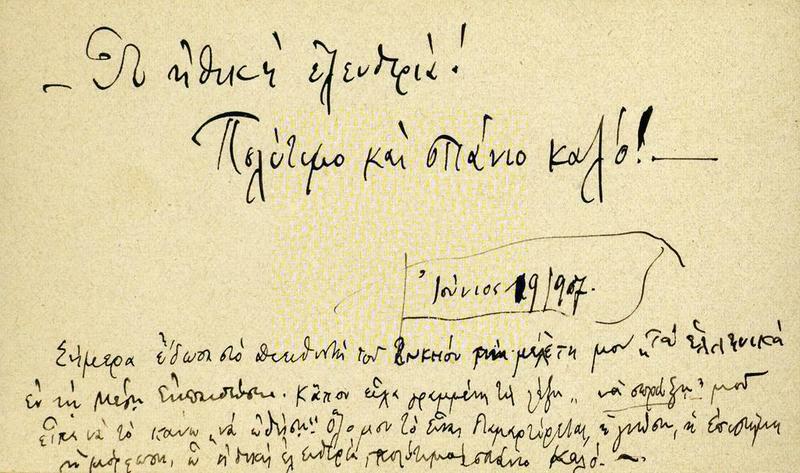 – Ὤ ἠθικὴ ἐλευθεριὰ!
Πολύτιμο καὶ σπάνιο καλό! —
Ἰούνιος 19/907.
Σήμερα ἔδωσα στὸ Διευθυντὴ τοῦ μελέτη μου „Τὰ ἑλληνικὰ
ἐν τῇ Μέσῃ Ἐκπαιδεύσει. Κάπου εἶχα γραμμένη τὴ λέξη „νὰ σπρώξῃ" μοῦ
εἶπε νὰ τὸ κάνω „νὰ ὠθήσῃ" Ὅλο μου τὸ εἶναι διαμαρτύρεται, ἡ γνώση, ἡ ἐπιστήμη
ἡ μόρφωση, ὢ ἠθικὴ ἐλευθεριά, πολύτιμο σπάνιο καλό. –